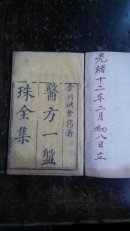 光緒十二年二月初八日立
醫方一盤
珠全集